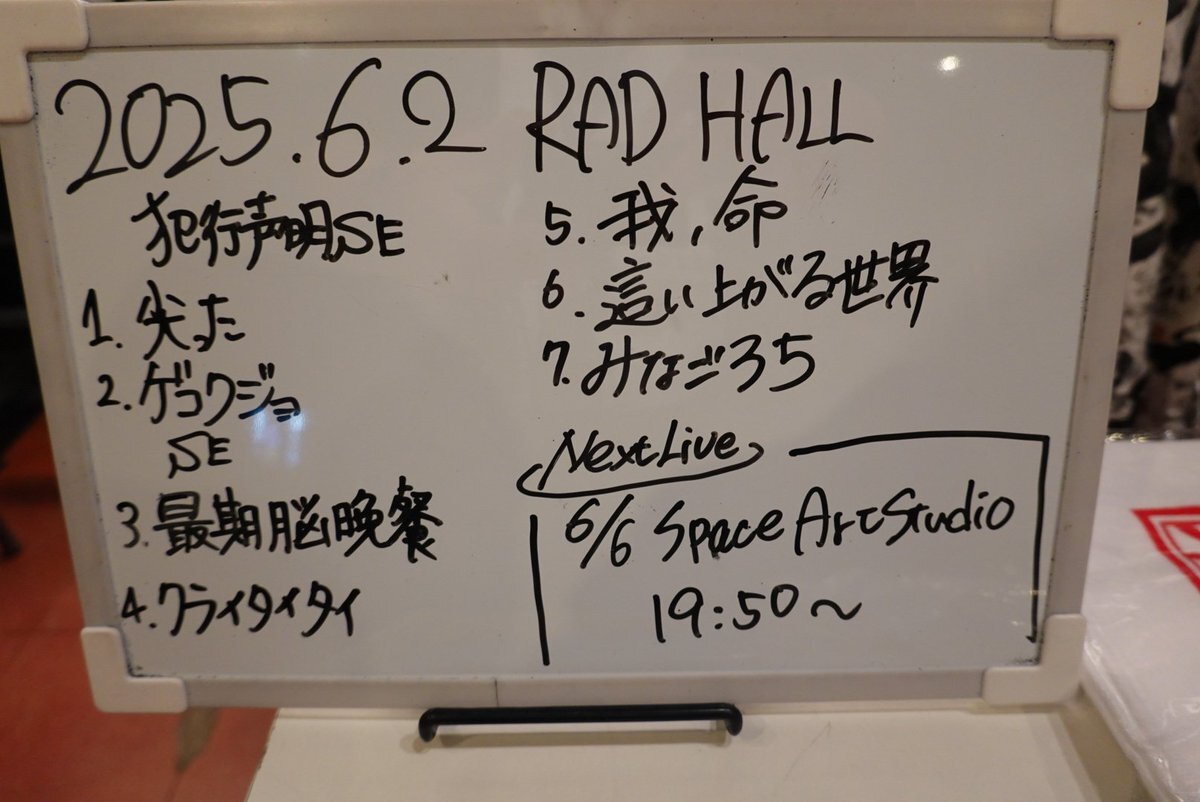 2025.6.2 RAD HALL
犯行声明SE
1. 尖った
2. ゲコクジョ
SE
3. 最期脳晩餐
4. クライタイタイ
5. 我,命
6. 這い上がる世界
7. みなごろち
Next Live
6/6 Space Art Studio
19:50～